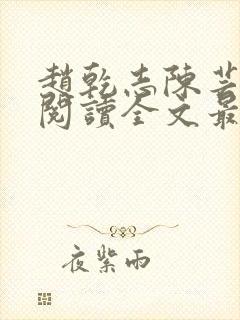 趙乾志陳芸
閱讀全文最
夜紫雨